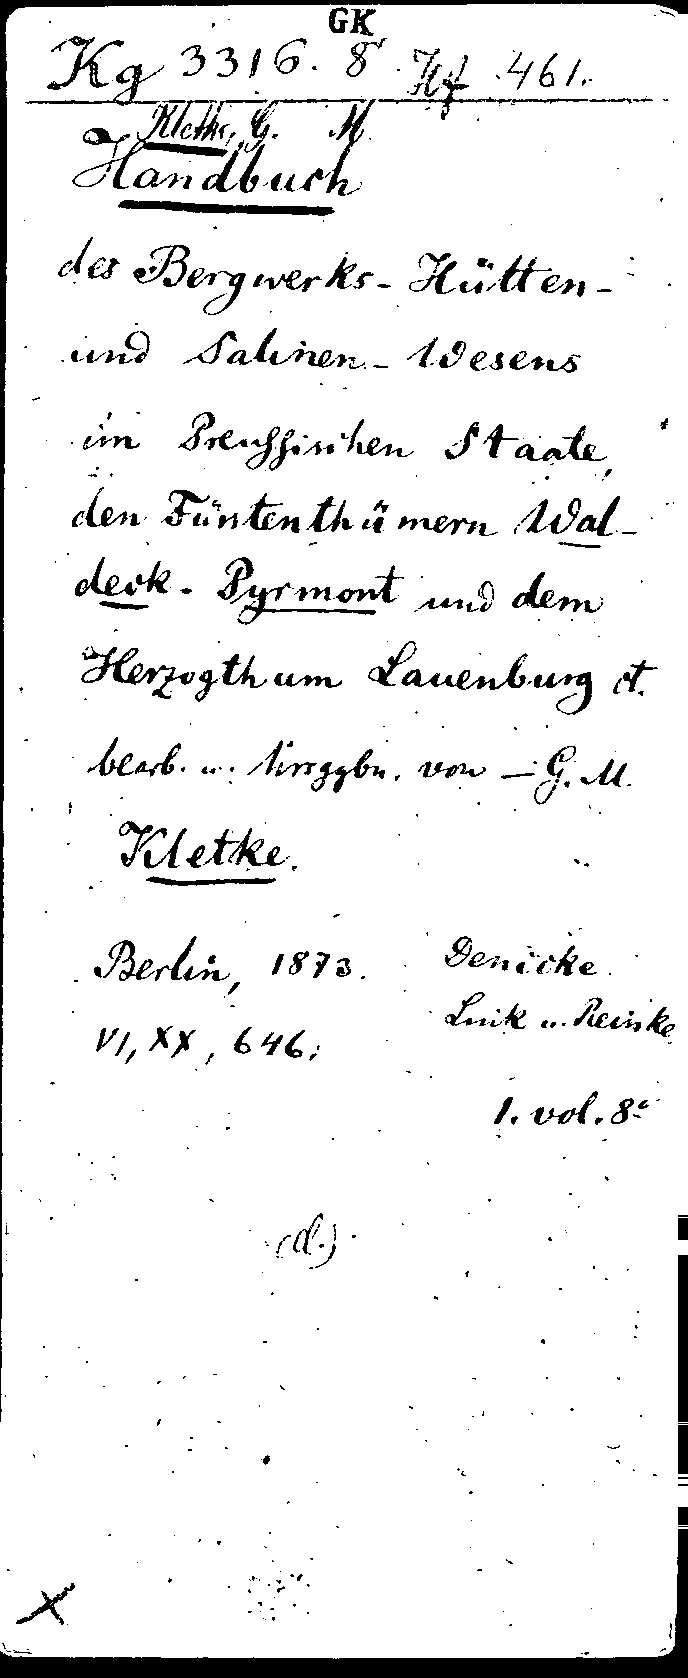 GK
Kg 3316. 8 Hf 461.
Kletke, G. M.
Handbuch
des Bergwerks- Hütten-
und Salinen- Wesens
im Preussischen Staate,
den Fürstenthümern Wal-
deck- Pyrmont und dem
Herzogthum Lauenburg et.
bearb. u. hrsggbn. von — G. M.
Kletke.
Berlin, 1873. Denicke
Link u. Reinke
VI, XX, 646;
1. vol. 8º
(d.)